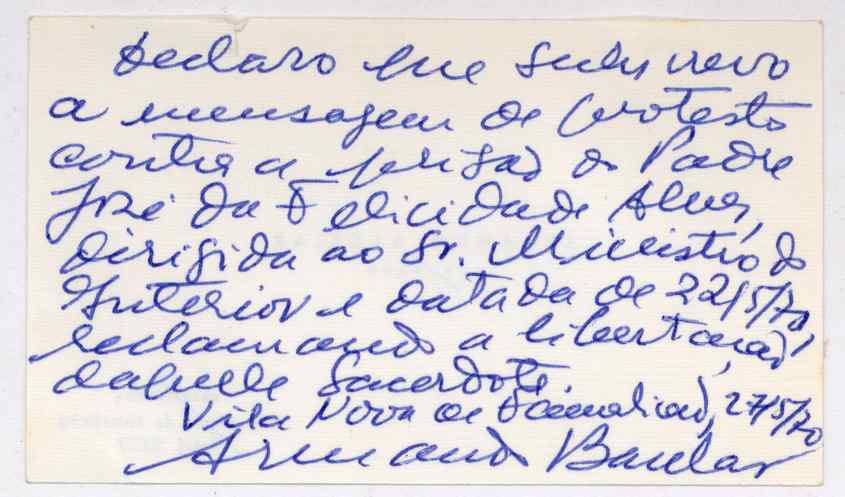 Declaro que subscrevo
a mensagem de protesto
contra a prisão do Padre
José da Felicidade Alves,
dirigida ao Sr. Ministro do
Interior e datada de 22/5/70,
reclamando a libertação
daquele Sacerdote.
Vila Nova de Famalicão, 27/5/70
Armando Bacelar